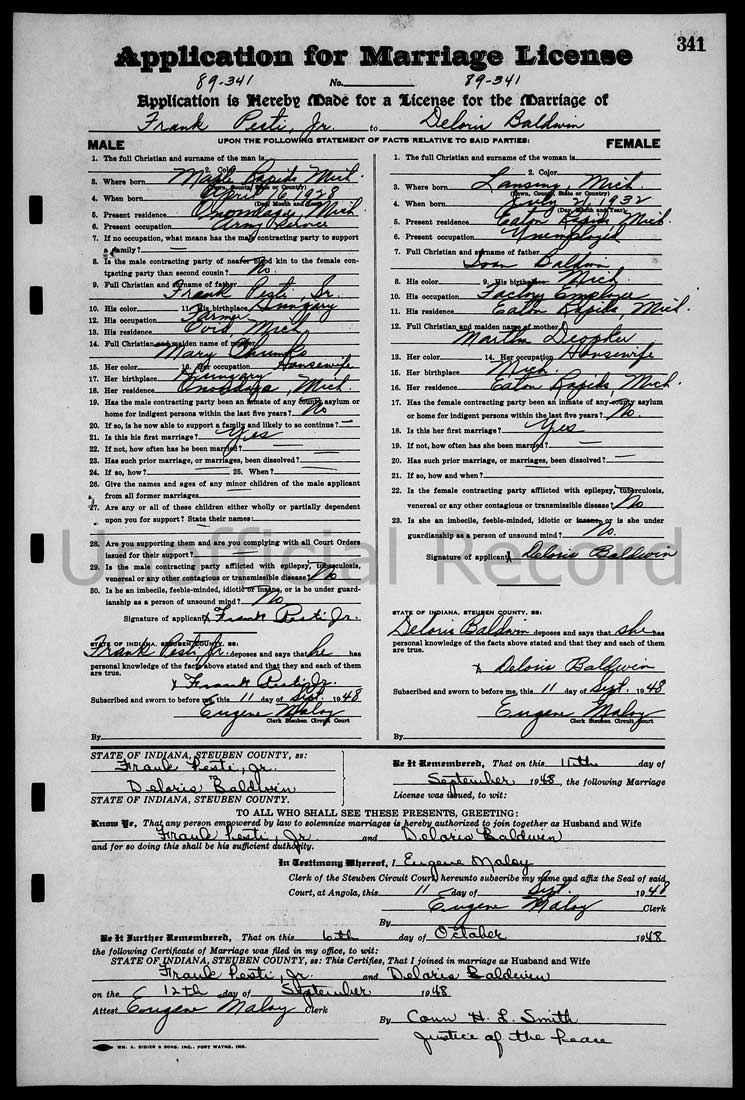 341
Application for Marriage License
89-341 No. 89-341
Application is Hereby Made for a License for the Marriage of
Frank Pesti, Jr. to Deloris Baldwin
UPON THE FOLLOWING STATEMENT OF FACTS RELATIVE TO SAID PARTIES:
MALE
1. The full Christian and surname of the man is
2. Color
3. Where born Maple Rapids Mich.
(Town, County, State or Country)
4. When born April 6 1928
(Day, Month and Year)
5. Present residence Onondaga, Mich.
6. Present occupation Army Service
7. If no occupation, what means has the male contracting party to support
a family? —
8. Is the male contracting party of nearer blood kin to the female con-
tracting party than second cousin? No.
9. Full Christian and surname of father
Frank Pesti, Sr.
10. His color 11. His birthplace Hungary
12. His occupation Farmer
13. His residence Ovid Mich
14. Full Christian and maiden name of mother
Mary
15. Her color 16. Her occupation Housewife
17. Her birthplace Hungary
18. Her residence Onondaga, Mich.
19. Has the male contracting party been an inmate of any county asylum or
home for indigent persons within the last five years? No
20. If so, is he now able to support a family and likely to so continue? —
21. Is this his first marriage? Yes
22. If not, how often has he been married? —
23. Has such prior marriage, or marriages, been dissolved? —
24. If so, how? 25. When?
26. Give the names and ages of any minor children of the male applicant
from all former marriages
27. Are any or all of these children either wholly or partially dependent
upon you for support? State their names:
28. Are you supporting them and are you complying with all Court Orders
issued for their support?
29. Is the male contracting party afflicted with epilepsy, tuberculosis,
venereal or any other contagious or transmissible disease? No
30. Is he an imbecile, feeble-minded, idiotic or insane, or is he under guard-
ianship as a person of unsound mind? No
Signature of applicant x Frank Pesti Jr.
STATE OF INDIANA, STEUBEN COUNTY, SS:
Frank Pesti Jr. deposes and says that he has
personal knowledge of the facts above stated and that they and each of them
are true.
x Frank Pesti Jr.
Subscribed and sworn to before me, this 11 day of Sept. 1948
Eugene Maloy
Clerk Steuben Circuit Court
By
FEMALE
1. The full Christian and surname of the woman is
2. Color
3. Where born Lansing, Mich
(Town, County, State or Country)
4. When born July 21, 1932
(Day, Month and Year)
5. Present residence Eaton Rapids, Mich.
6. Present occupation Unemployed
7. Full Christian and surname of father
Baldwin
8. His color 9. His birthplace Mich.
10. His occupation Factory Employee
11. His residence Eaton Rapids, Mich.
12. Full Christian and maiden name of mother
Martha
13. Her color 14. Her occupation Housewife
15. Her birthplace Mich.
16. Her residence Eaton Rapids, Mich
17. Has the female contracting party been an inmate of any county asylum
or home for indigent persons within the last five years? No
18. Is this her first marriage? Yes
19. If not, how often has she been married? —
20. Has such prior marriage, or marriages, been dissolved? —
21. If so, how and when?
22. Is the female contracting party afflicted with epilepsy, tuberculosis,
venereal or any other contagious or transmissible disease? No
23. Is she an imbecile, feeble-minded, idiotic or insane, or is she under
guardianship as a person of unsound mind? No.
Signature of applicant x Deloris Baldwin
STATE OF INDIANA, STEUBEN COUNTY, SS:
Deloris Baldwin deposes and says that she has
personal knowledge of the facts above stated and that they and each of them
are true.
x Deloris Baldwin
Subscribed and sworn to before me, this 11 day of Sept. 1948
Eugene Maloy
Clerk Steuben Circuit Court
By
Unofficial Record
STATE OF INDIANA, STEUBEN COUNTY, ss:
Frank Pesti, Jr.
TO
Deloris Baldwin
STATE OF INDIANA, STEUBEN COUNTY.
Be it Remembered, That on this 11th day of
September 1948, the following Marriage
License was issued, to wit:
TO ALL WHO SHALL SEE THESE PRESENTS, GREETING:
Know Ye, That any person empowered by law to solemnize marriages is hereby authorized to join together as Husband and Wife
Frank Pesti, Jr and Deloris Baldwin
and for so doing this shall be his sufficient authority.
In Testimony Whereof, I Eugene Maloy
Clerk of the Steuben Circuit Court, hereunto subscribe my name and affix the Seal of said
Court, at Angola, this 11 day of Sept. 1948
Eugene Maloy Clerk
By
Be it Further Remembered, That on this 6th day of October 1948
the following Certificate of Marriage was filed in my office, to wit:
STATE OF INDIANA, STEUBEN COUNTY, ss: This Certifies, That I joined in marriage as Husband and Wife
Frank Pesti, Jr. and Deloris Baldwin
on the 12th day of September 1948
Attest Eugene Maloy Clerk
By Conn H. L. Smith
Justice of the Peace
WM. A. DIDIER & SONS, INC., FORT WAYNE, IND.